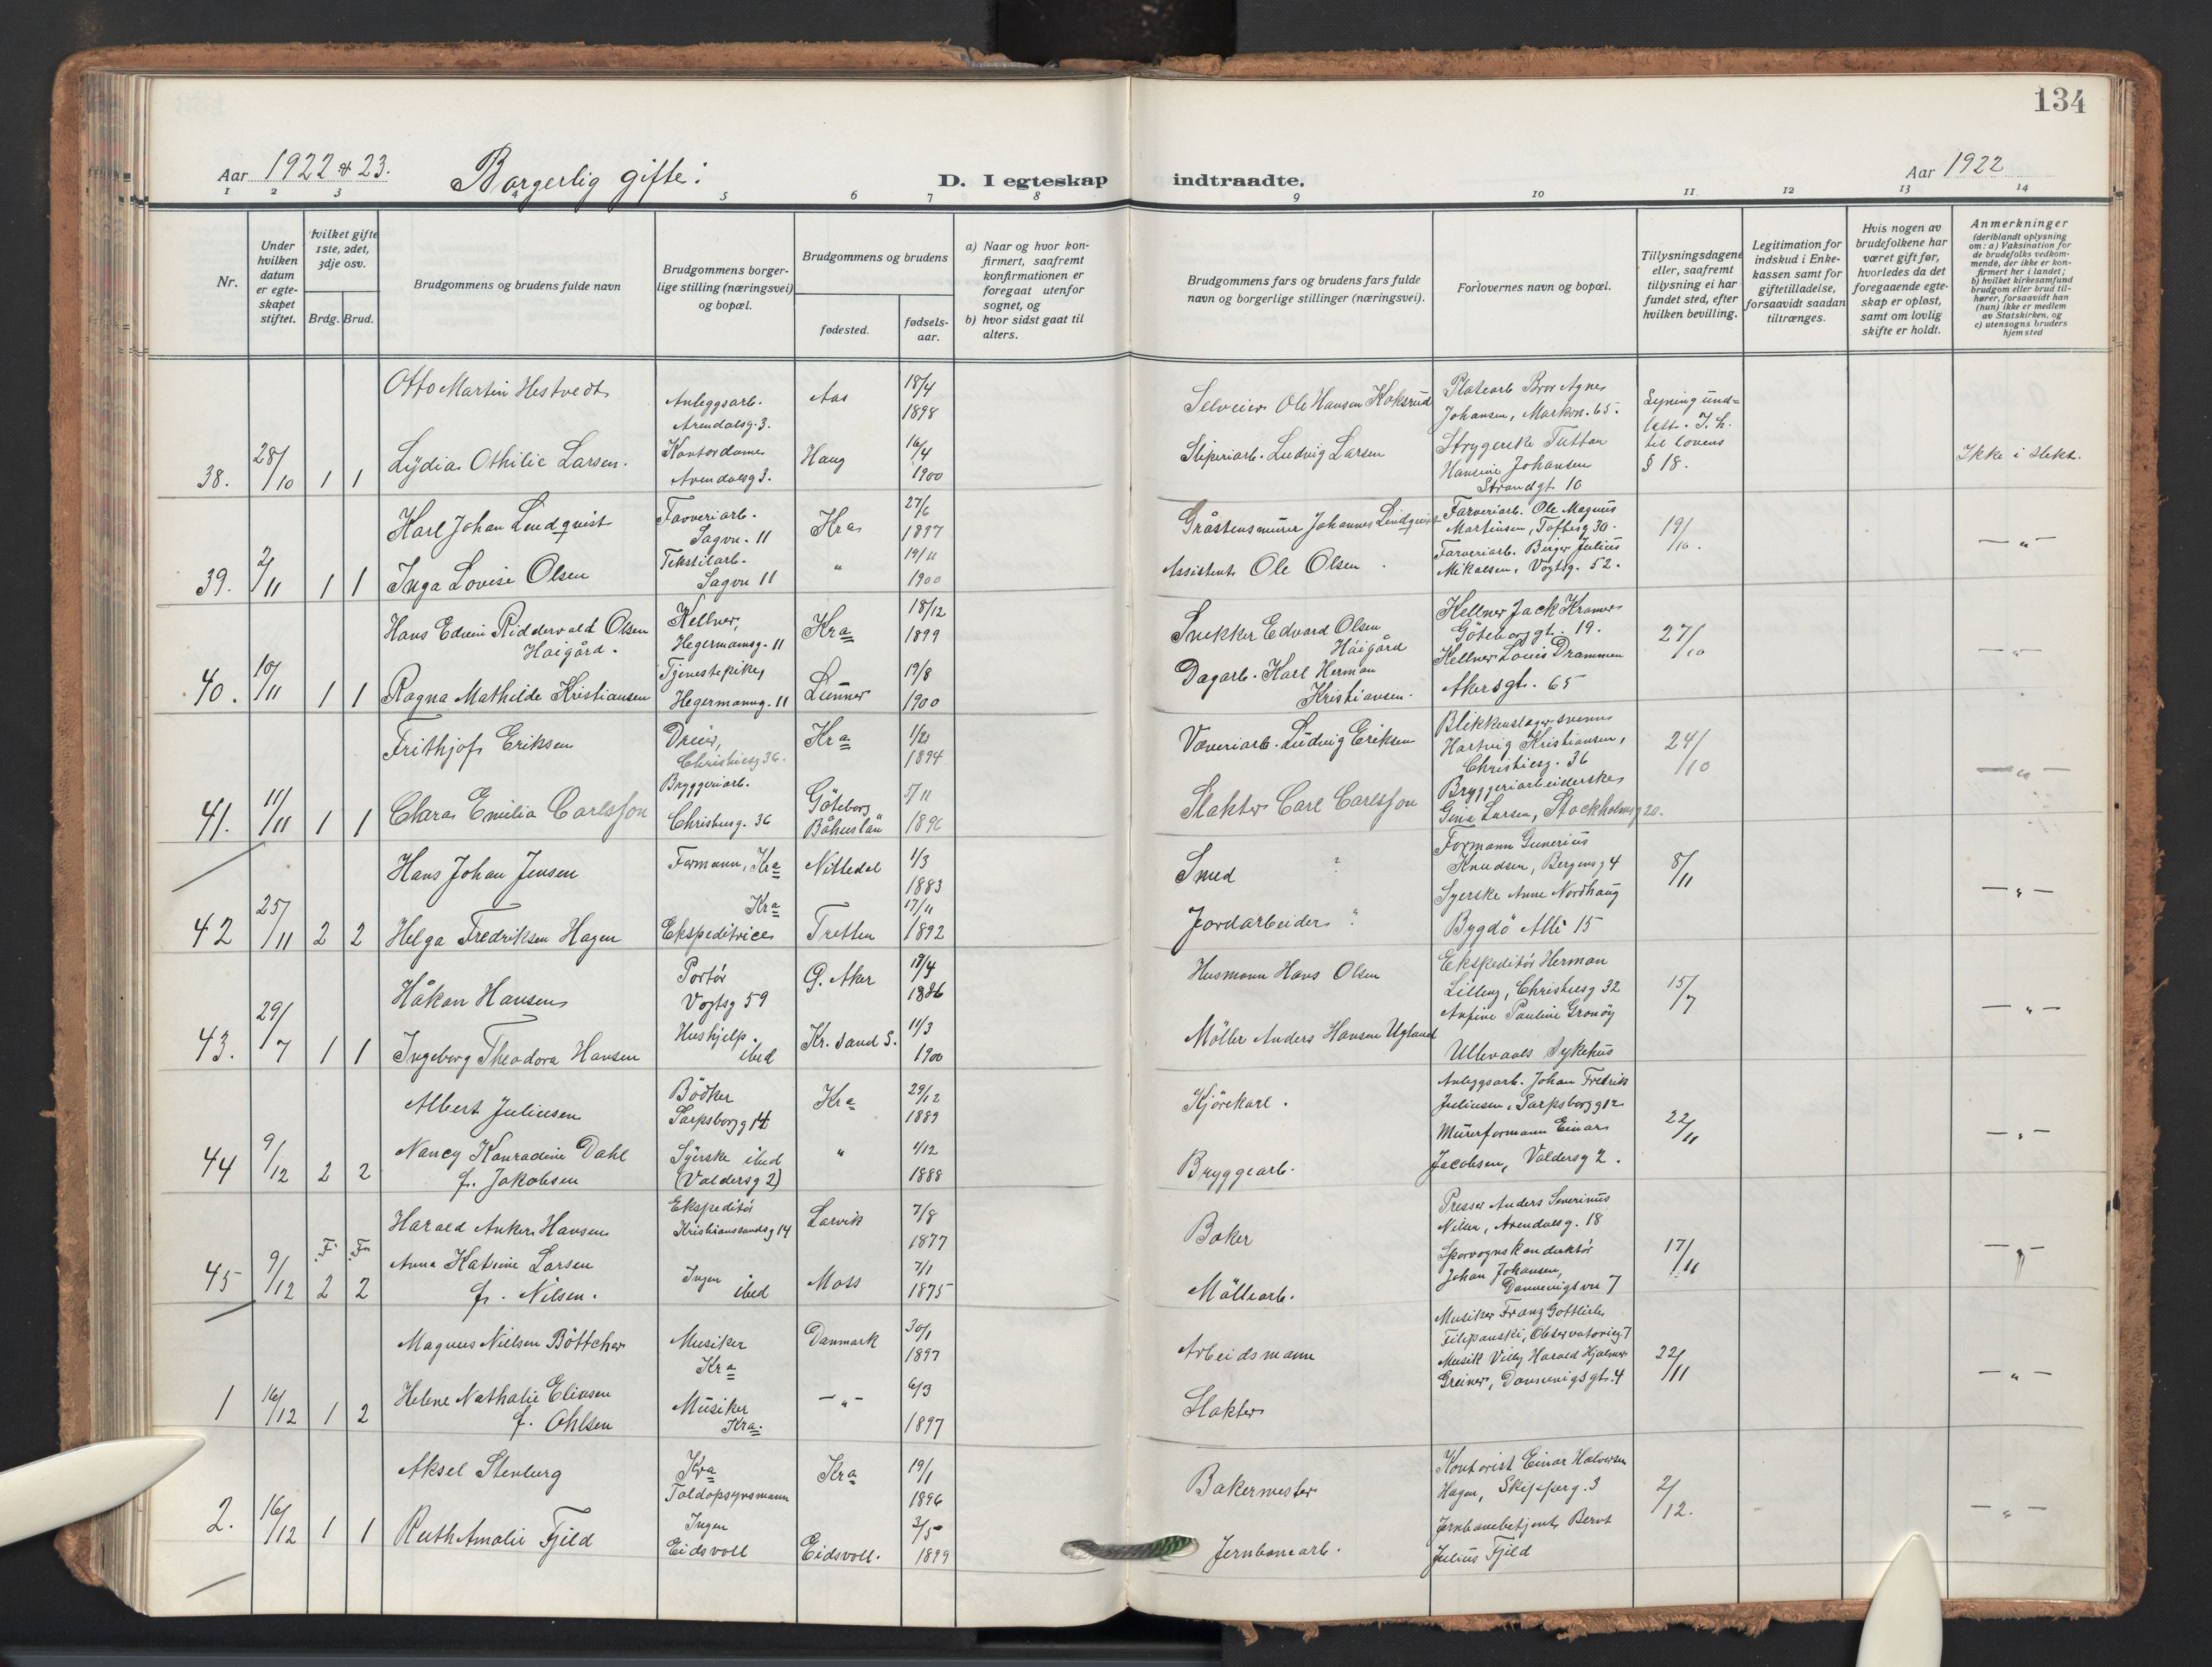 134
Aar 1922 & 23. Borgerlig gifte: D. I egteskap indtraadte. Aar 1922
1 2 3 4 5 6 7 8 9 10 11 12 13 14
Nr.
Under hvilken datum er egteskapet stiftet.
Hvilket gifte 1ste, 2det, 3dje osv.
Brdg. Brud.
Brudgommens og brudens fulde navn
Brudgommens borgerlige stilling (næringsvei) og bopæl.
Brudgommens og brudens
fødested.
fødselsaar.
a) Naar og hvor konfirmert, saafremt konfirmationen er foregaat utenfor sognet, og
b) hvor sidst gaat til alters.
Brudgommens fars og brudens fars fulde navn og borgerlige stillinger (næringsvei).
Forlovernes navn og bopæl.
Tillysningsdagene eller, saafremt tillysning ei har fundet sted, efter hvilken bevilling.
Legitimation for indskud i Enkekassen samt for giftetilladelse, forsaavidt saadan tiltrænges.
Hvis nogen av brudefolkene har været gift før, hvorledes da det foregaaende egteskap er opløst, samt om lovlig skifte er holdt.
Anmerkninger
(deriblandt oplysning om: a) Vaksination for de brudefolks vedkommende, der ikke er konfirmert her i landet; b) hvilket kirkesamfund brudgom eller brud tilhører, forsaavidt han (hun) ikke er medlem av Statskirken, og c) utensogns bruders hjemsted
38. 28/10 1 1
Otto Martin Hestvedt
Anleggsarb. Arendalsg. 3.
Aas
18/4 1898
Selveier Ole Hansen Koksrud
Platearb Bror Agnes
Johansen, Markvn. 65.
Lydia Othilie Larsen.
Kontordame
Arendalsg 3.
Haug
16/4 1900
Sliperiarb. Ludvig Larsen
Strygerske Tuttan
Hansine Johansen
Strandgt. 10
til lovens
§ 18.
Ikke i slekt.
39. 2/11 1 1
Karl Johan Lindqvist
Farveriarb.
Sagvn. 11
Kra
27/6 1897
Gråstensmurer Johannes Lindqvist
Farveriarb. Ole Magnus
Martinsen, Toftesg 30.
19/10.
Inga Lovise Olsen
Tekstilarb.
Sagvn 11
"
19/11 1900
Assistent Ole Olsen
Farveriarb. Birger Julius
Mikalsen, Vogtsg. 52.
— " —
40. 10/11 1 1
Hans Edvin Riddervold Olsen
Haigård.
Kellner,
Hegermannsg. 11
Kra
18/12 1899
Snekker Edvard Olsen
Håigård
Kellner Jack Kramer
Göteborggt. 19.
27/10
Ragna Mathilde Kristiansen
Tjenestepike,
Hegermannsg. 11
Lunner
19/8 1900
Dagarb. Karl Herman
Kristiansen.
Kellner Louis Drammen
Akersgt. 65
— " —
41. 11/11 1 1
Frithjof Eriksen
Dreier,
Christiesg 36.
Kra
1894
Væveriarb. Ludvig Eriksen
Blikkenslagersvenn
Hartvig Kristiansen,
Christiesg. 36
24/10
Clara Emilia Carlsson
Bryggeriarb.
Christiesg. 36
Göteborg
Båhuslän
5/11 1896
Slakter Carl Carlsson
Bryggeriarbeiderske
Gina Larsen, Stockholmsg 20.
— " —
42 25/11 2 2
Hans Johan Jensen
Formann, Kra
Nittedal
1/3 1883
Smed ?
Formann Gunerius
Knudsen, Bergensg 4
8/11
Helga Fredriksen Hagen
Kra
Ekspeditrice
Tretten
17/11 1892
Jordarbeider ?
Syerske Anne Nordhaug
Bygdö Allé 15
— " —
43. 29/7 1 1
Håkon Hansen
Portör
Vogtsg 59
Ø. Aker
19/4 1886
Husmann Hans Olsen
Ekspeditör Herman
Lilleng, Christiesg 32
15/7
Ingeborg Theodora Hansen
Hushjelp.
ibid
Kr. sand S.
11/3 1900
Möller Anders Hansen Ugland
Anfine Pauline Gronöy
Ullevaals sykehus
— " —
44 9/12 2 2
Albert Juliusen
Bödker
Sarpsborgg 14
Kra
29/12 1889
Kjörekarl.
Anleggsarb. Johan Fredrik
Juliusen, Sarpsborgg 12
22/11
Nancy Konradine Dahl
f. Jakobsen
Syerske ibid
(Valdersg 2)
"
4/12 1888
Bryggearb.
Murerformann Einar
Jacobsen, Valdersg 2.
— " —
45 9/12 2 2
Harald Anker Hansen
Ekspeditör
Kristianssandsg 14
Larvik
7/8 1877
Baker
Presser Anders Severinus
Nilsen, Arendalsg. 18
17/11
Anna Katrine Larsen
f. Nilsen.
Ingen ibid
Moss
7/1 1875
Möllearb.
Sporvognskonduktör
Johan Johansen,
Dannevigsvn 7
— " —
1 16/12 1 2
Magnus Nielsen Böttcher
Musiker
Kra
Danmark
30/1 1897
Arbeidsmann
Musiker Franz Gottlieb
Filipanski, Observatorieg 7
22/11
Helene Nathalie Eliasen
f. Ohlsen
Musiker
Kra.
— " —
6/3 1897
Slakter
Musik Villy Harald Hjalmar
Greiner, Dannevigsgt. 4
— " —
2. 16/12 1 1
Aksel Stenberg
Kra
Toldopsynsmann
Kra
19/1 1896
Bakermester
Kontorist Einar Halvorsen
Hagen, Skipperg. 3
2/12.
Ruth Amalie Fjeld
Ingen
Eidsvoll
Eidsvoll.
3/5 1899
Jernbanearb.
Jernbanebetjent Bernt
Julius Fjeld
— " —